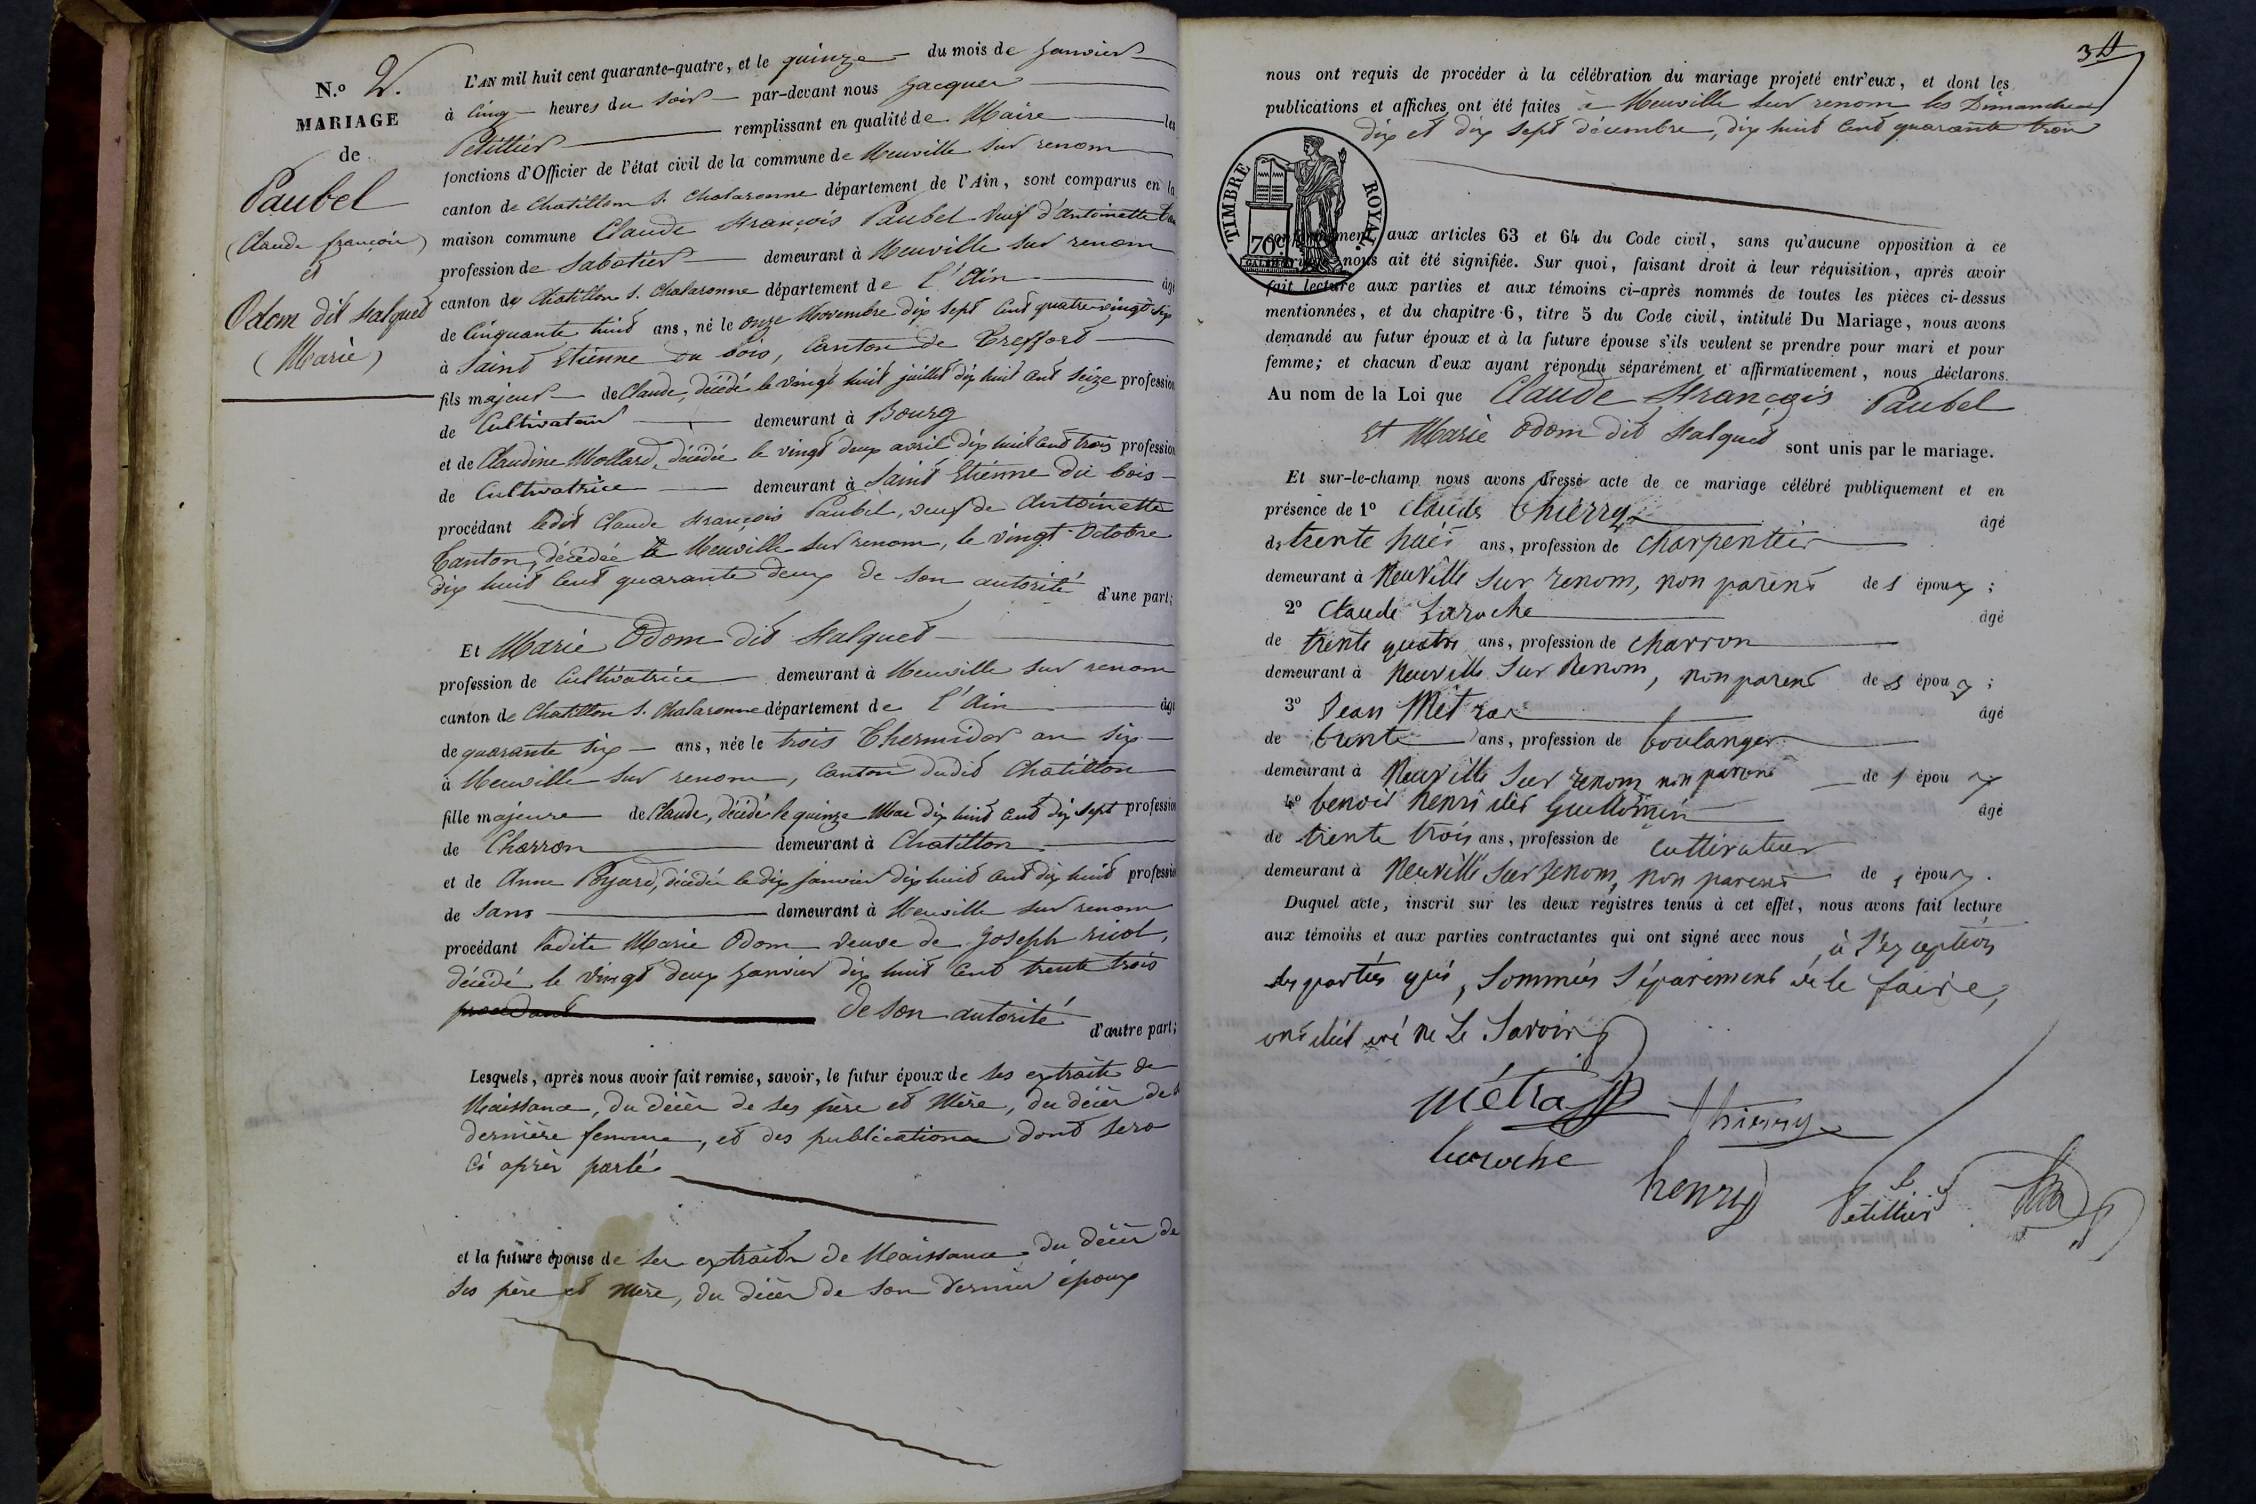 N.o 2.
MARIAGE
de
Paubel
(Claude françois)
et
Odom dit halqued
(Marie)
L'AN mil huit cent quarante-quatre, et le quinze du mois de Janvier
à cinq heures du soir par-devant nous Jacques
Petittier remplissant en qualité de Maire les
fonctions d'Officier de l'état civil de la commune de Neuville sur renom
canton de Chatillon s. Chalaronne département de l'Ain, sont comparus en la
maison commune Claude François Paubel veuf d'antoinette
profession de Sabotier demeurant à Neuville sur renom
canton de Chatillon s. Chalaronne département de l'Ain âgé
de cinquante huit ans, né le onze Novembre dix sept cent quatre vingt six
à Saint Etienne du bois, canton de Treffort
fils majeur de Claude, décédé le vingt huit juillet dix huit cent seize profession
de Cultivateur demeurant à Bourg
et de Claudine Mollard, décédée le vingt deux avril dix huit cent trois profession
de Cultivatrice demeurant à Saint Etienne du bois
procédant ledit Claude françois Paubel, veuf de Antoinette
Canton, décédée à Neuville sur renom, le vingt Octobre
dix huit cent quarante deux de son autorité d'une part;
Et Marie Odom dit halqued
profession de Cultivatrice demeurant à Neuville sur renom
canton de Chatillon s. Chalaronne département de l'Ain âgé
de quarante six ans, née le trois Thermidor an six
à Neuville sur renom, canton dudit Chatillon
fille majeure de Claude, décédé le quinze Mai dix huit cent dix sept profession
de Charron demeurant à Chatillon
et de Anne Poyard, décédée le dix janvier dix huit cent dix huit profession
de Sans demeurant à Neuville sur renom
procédant ladite Marie Odom veuve de Joseph
décédé le vingt deux janvier dix huit cent trente trois
procédant de son autorité d'autre part;
Lesquels, après nous avoir fait remise, savoir, le futur époux de ses extraits de
Naissance, du décès de ses père et Mère, du décès de sa
dernière femme, et des publications dont sera
ci après parlé
et la future épouse de ses extraits de Naissance, du décès de
ses père et Mère, du décès de son dernier époux
34
nous ont requis de procéder à la célébration du mariage projeté entr'eux, et dont les
publications et affiches ont été faites à Neuville sur renom les Dimanches
dix et dix sept décembre, dix huit cent quarante trois
TIMBRE ROYAL.
70c
conformément aux articles 63 et 64 du Code civil, sans qu'aucune opposition à ce
mariage nous ait été signifiée. Sur quoi, faisant droit à leur réquisition, après avoir
fait lecture aux parties et aux témoins ci-après nommés de toutes les pièces ci-dessus
mentionnées, et du chapitre 6, titre 5 du Code civil, intitulé Du Mariage, nous avons
demandé au futur époux et à la future épouse s'ils veulent se prendre pour mari et pour
femme; et chacun d'eux ayant répondu séparément et affirmativement, nous déclarons
Au nom de la Loi que Claude François Paubel
et Marie Odom dit halqued sont unis par le mariage.
Et sur-le-champ nous avons dressé acte de ce mariage célébré publiquement et en
présence de 1o Claude Thierry âgé
de trente huit ans, profession de charpentier
demeurant à Neuville sur renom, non parent de s époux;
2o Claude Laroche âgé
de trente quatre ans, profession de charron
demeurant à Neuville sur Renom, non parent de s époux;
3o Jean Métras âgé
de trente ans, profession de boulanger
demeurant à Neuville sur renom non parent de s époux
4o benoit henri dit Guillomin âgé
de trente trois ans, profession de cultivateur
demeurant à Neuville sur renom, non parent de s époux.
Duquel acte, inscrit sur les deux registres tenus à cet effet, nous avons fait lecture
aux témoins et aux parties contractantes qui ont signé avec nous à l'exception
des parties qui, sommées séparément de le faire,
ont déclaré ne le savoir
métras Thierry
laroche
henry Petittier